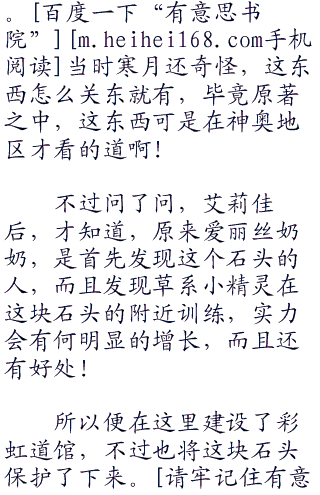 。[百度一下“有意思书
院”][m.heihei168.com手机
阅读]当时寒月还奇怪，这东
西怎么关东就有，毕竟原著
之中，这东西可是在神奥地
区才看的道啊！
不过问了问，艾莉佳
后，才知道，原来爱丽丝奶
奶，是首先发现这个石头的
人，而且发现草系小精灵在
这块石头的附近训练，实力
会有何明显的增长，而且还
有好处！
所以便在这里建设了彩
虹道馆，不过也将这块石头
保护了下来。[请牢记住有意